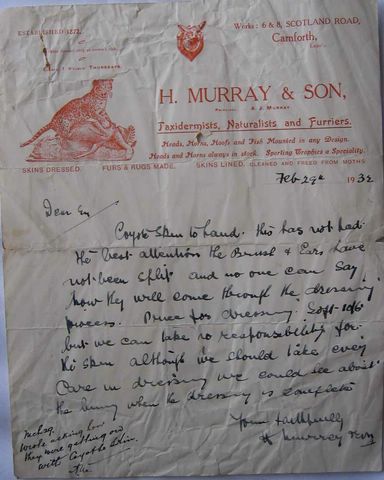 ESTABLISHED 1872.
Works: 6 & 8, SCOTLAND ROAD,
Carnforth,
H. MURRAY & SON,
Taxidermists, Naturalists and Furriers.
Heads, Horns, Hoofs and Fish Mounted in any Design.
Heads and Horns always in stock. Sporting Trophies a Speciality.
SKINS DRESSED. FURS & RUGS MADE. SKINS LINED, CLEANED AND FREED FROM MOTHS
Feb 29th 1932
Dear
Coyote Skin to hand. this has not had
the best attention the Brush & Ears have
not been split and no one can say
how they will come through the dressing
process. Price for dressing
but we can take no responsibility for
the skin although we should take every
care in dressing we could see about
the lining when the dressing is complete
Yours faithfully
H Murray & Son
Wrote asking how
they were getting on
with Coyote Skin.